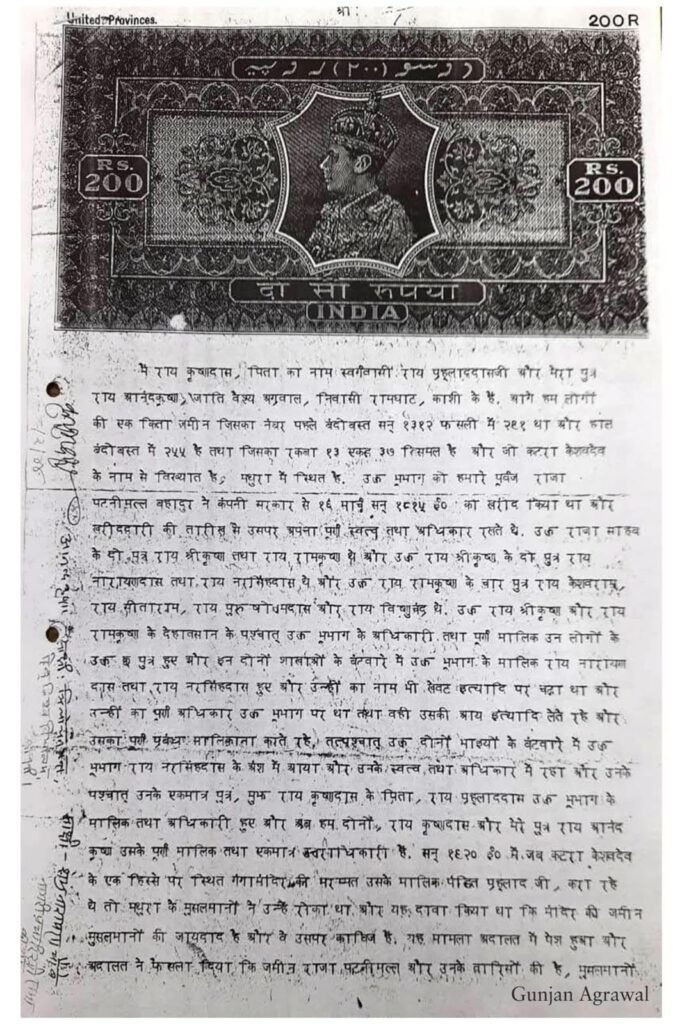 श्री:
United Provinces. 200 R
RS. 200
RS. 200
दो सौ रुपया
INDIA
मैं राय कृष्णदास, पिता का नाम स्वर्गवासी राय प्रहलाददासजी और मेरा पुत्र
राय आनंदकृष्ण, जाति वैश्य अग्रवाल, निवासी रामघाट, काशी के हैं. आगे हम लोगों
की एक किता जमीन जिसका नंबर पहले बंदोबस्त सन् १३१२ फसली में २८१ था और हाल
बंदोबस्त में २५५ है तथा जिसका रकबा १३ एकड़ ३७ डिसमल है और जो कटरा केशवदेव
के नाम से विख्यात है, मथुरा में स्थित है. उक्त भूभाग को हमारे पूर्वज राजा
पटनीमल्ल बहादुर ने कंपनी सरकार से १६ मार्च सन् १८१५ ई० को खरीद किया था और
खरीददारी की तारीख से उसपर अपना पूर्ण स्वत्व तथा अधिकार रखते थे. उक्त राजा साहब
के दो पुत्र राय श्रीकृष्ण तथा राय रामकृष्ण थे और उक्त राय श्रीकृष्ण के दो पुत्र राय
नारायणदास तथा राय नरसिंहदास थे और उक्त राय रामकृष्ण के चार पुत्र राय केशवराम,
राय सीताराम, राय पुरुषोत्तमदास और राय विष्णुचंद्र थे. उक्त राय श्रीकृष्ण और राय
रामकृष्ण के देहावसान के पश्चात् उक्त भूभाग के अधिकारी तथा पूर्ण मालिक उन लोगों के
उक्त छ पुत्र हुए और इन दोनों शाखाओं के बंटवारे में उक्त भूभाग के मालिक राय नारायण
दास तथा राय नरसिंहदास हुए और उन्हीं का नाम भी खेवट इत्यादि पर चढ़ा था और
उन्हीं का पूर्ण अधिकार उक्त भूभाग पर था तथा वही उसकी आय इत्यादि लेते रहे और
उसका पूर्ण प्रबंध मालिकाना करते रहे. तत्पश्चात् उक्त दोनों भाइयों के बंटवारे में उक्त
भूभाग राय नरसिंहदास के अंश में आया और उनके स्वत्व तथा अधिकार में रहा और उनके
पश्चात् उनके एकमात्र पुत्र, मुझ राय कृष्णदास के पिता, राय प्रहलाददास उक्त भूभाग के
मालिक तथा अधिकारी हुए और अब हम दोनों, राय कृष्णदास और मेरे पुत्र राय आनंद
कृष्ण उसके पूर्ण मालिक तथा एकमात्र उत्तराधिकारी हैं. सन् १९२० ई० में जब कटरा केशवदेव
के एक हिस्से पर स्थित गंगामंदिर की मरम्मत उसके मालिक पंडित प्रहलाद जी, करा रहे
थे तो मथुरा के मुसलमानों ने उन्हें रोका था और यह दावा किया था कि मंदिर की जमीन
मुसलमानों की जायदाद है और वे उसपर काबिज हैं. यह मामला अदालत में पेश हुआ और
अदालत ने फैसला दिया कि जमीन राजा पटनीमल्ल और उनके वारिसों की है, मुसलमानों
Gunjan Agrawal